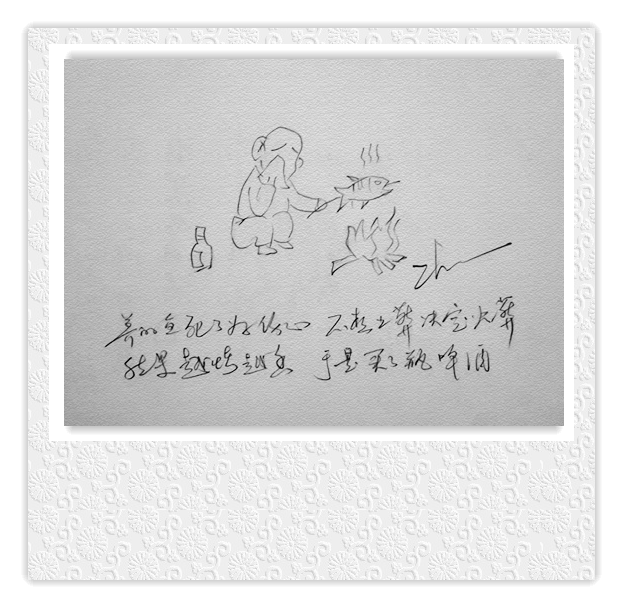 养的鱼死了好伤心 不想土葬决定火葬
结果越烤越香 于是买了瓶啤酒